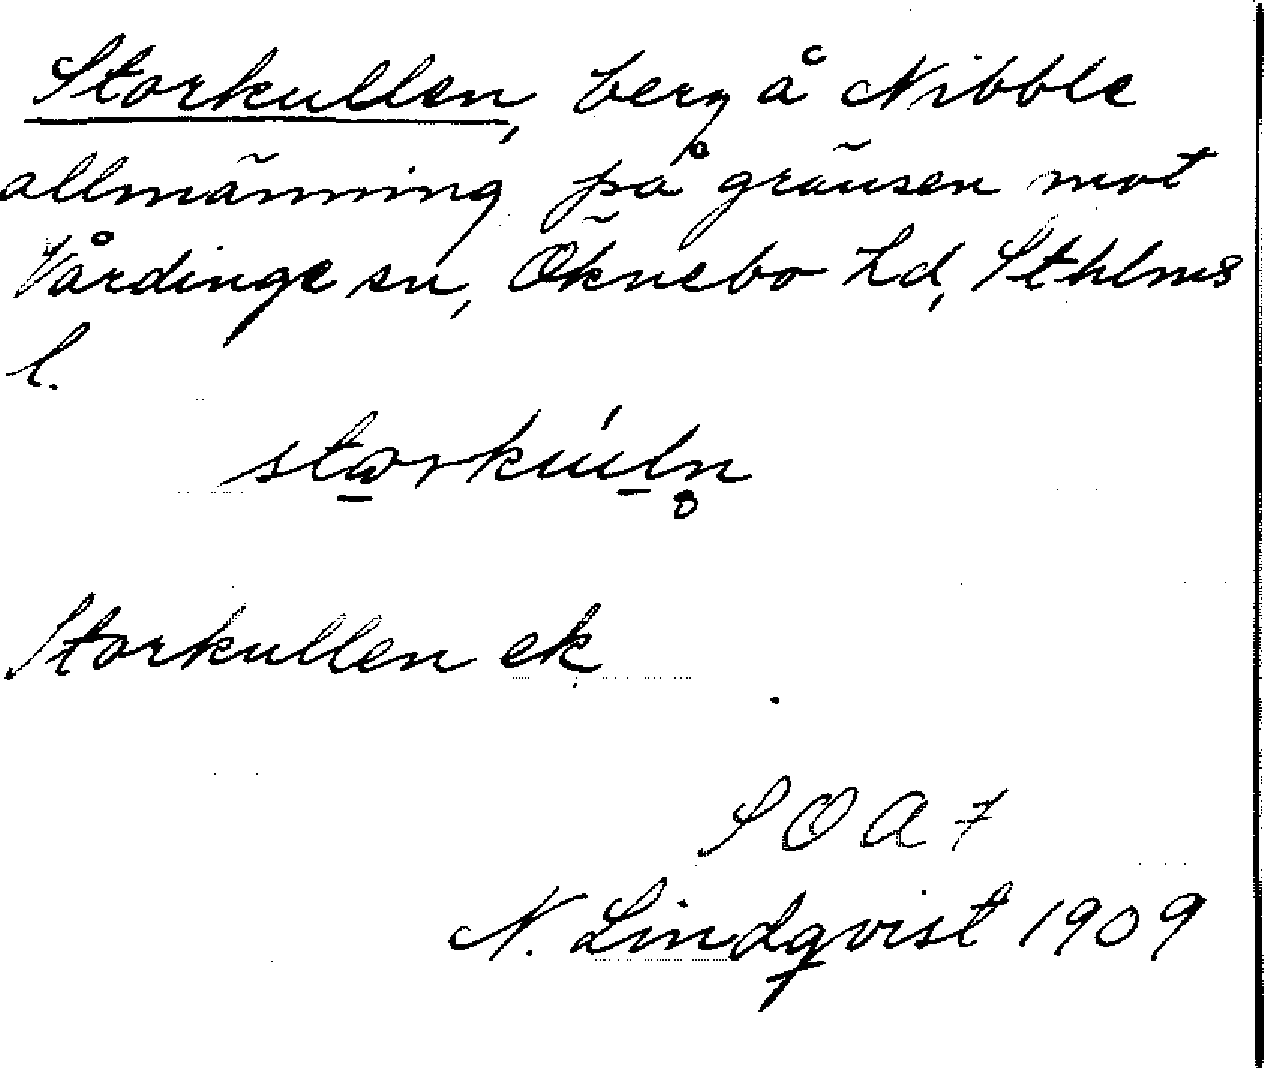 Storkullen, berg å Nibble
allmänning på gränsen mot
Vårdinge sn, Öknebo hd, Sthlms
l.
Storkullen ek
SOA 7
N. Lindqvist 1909